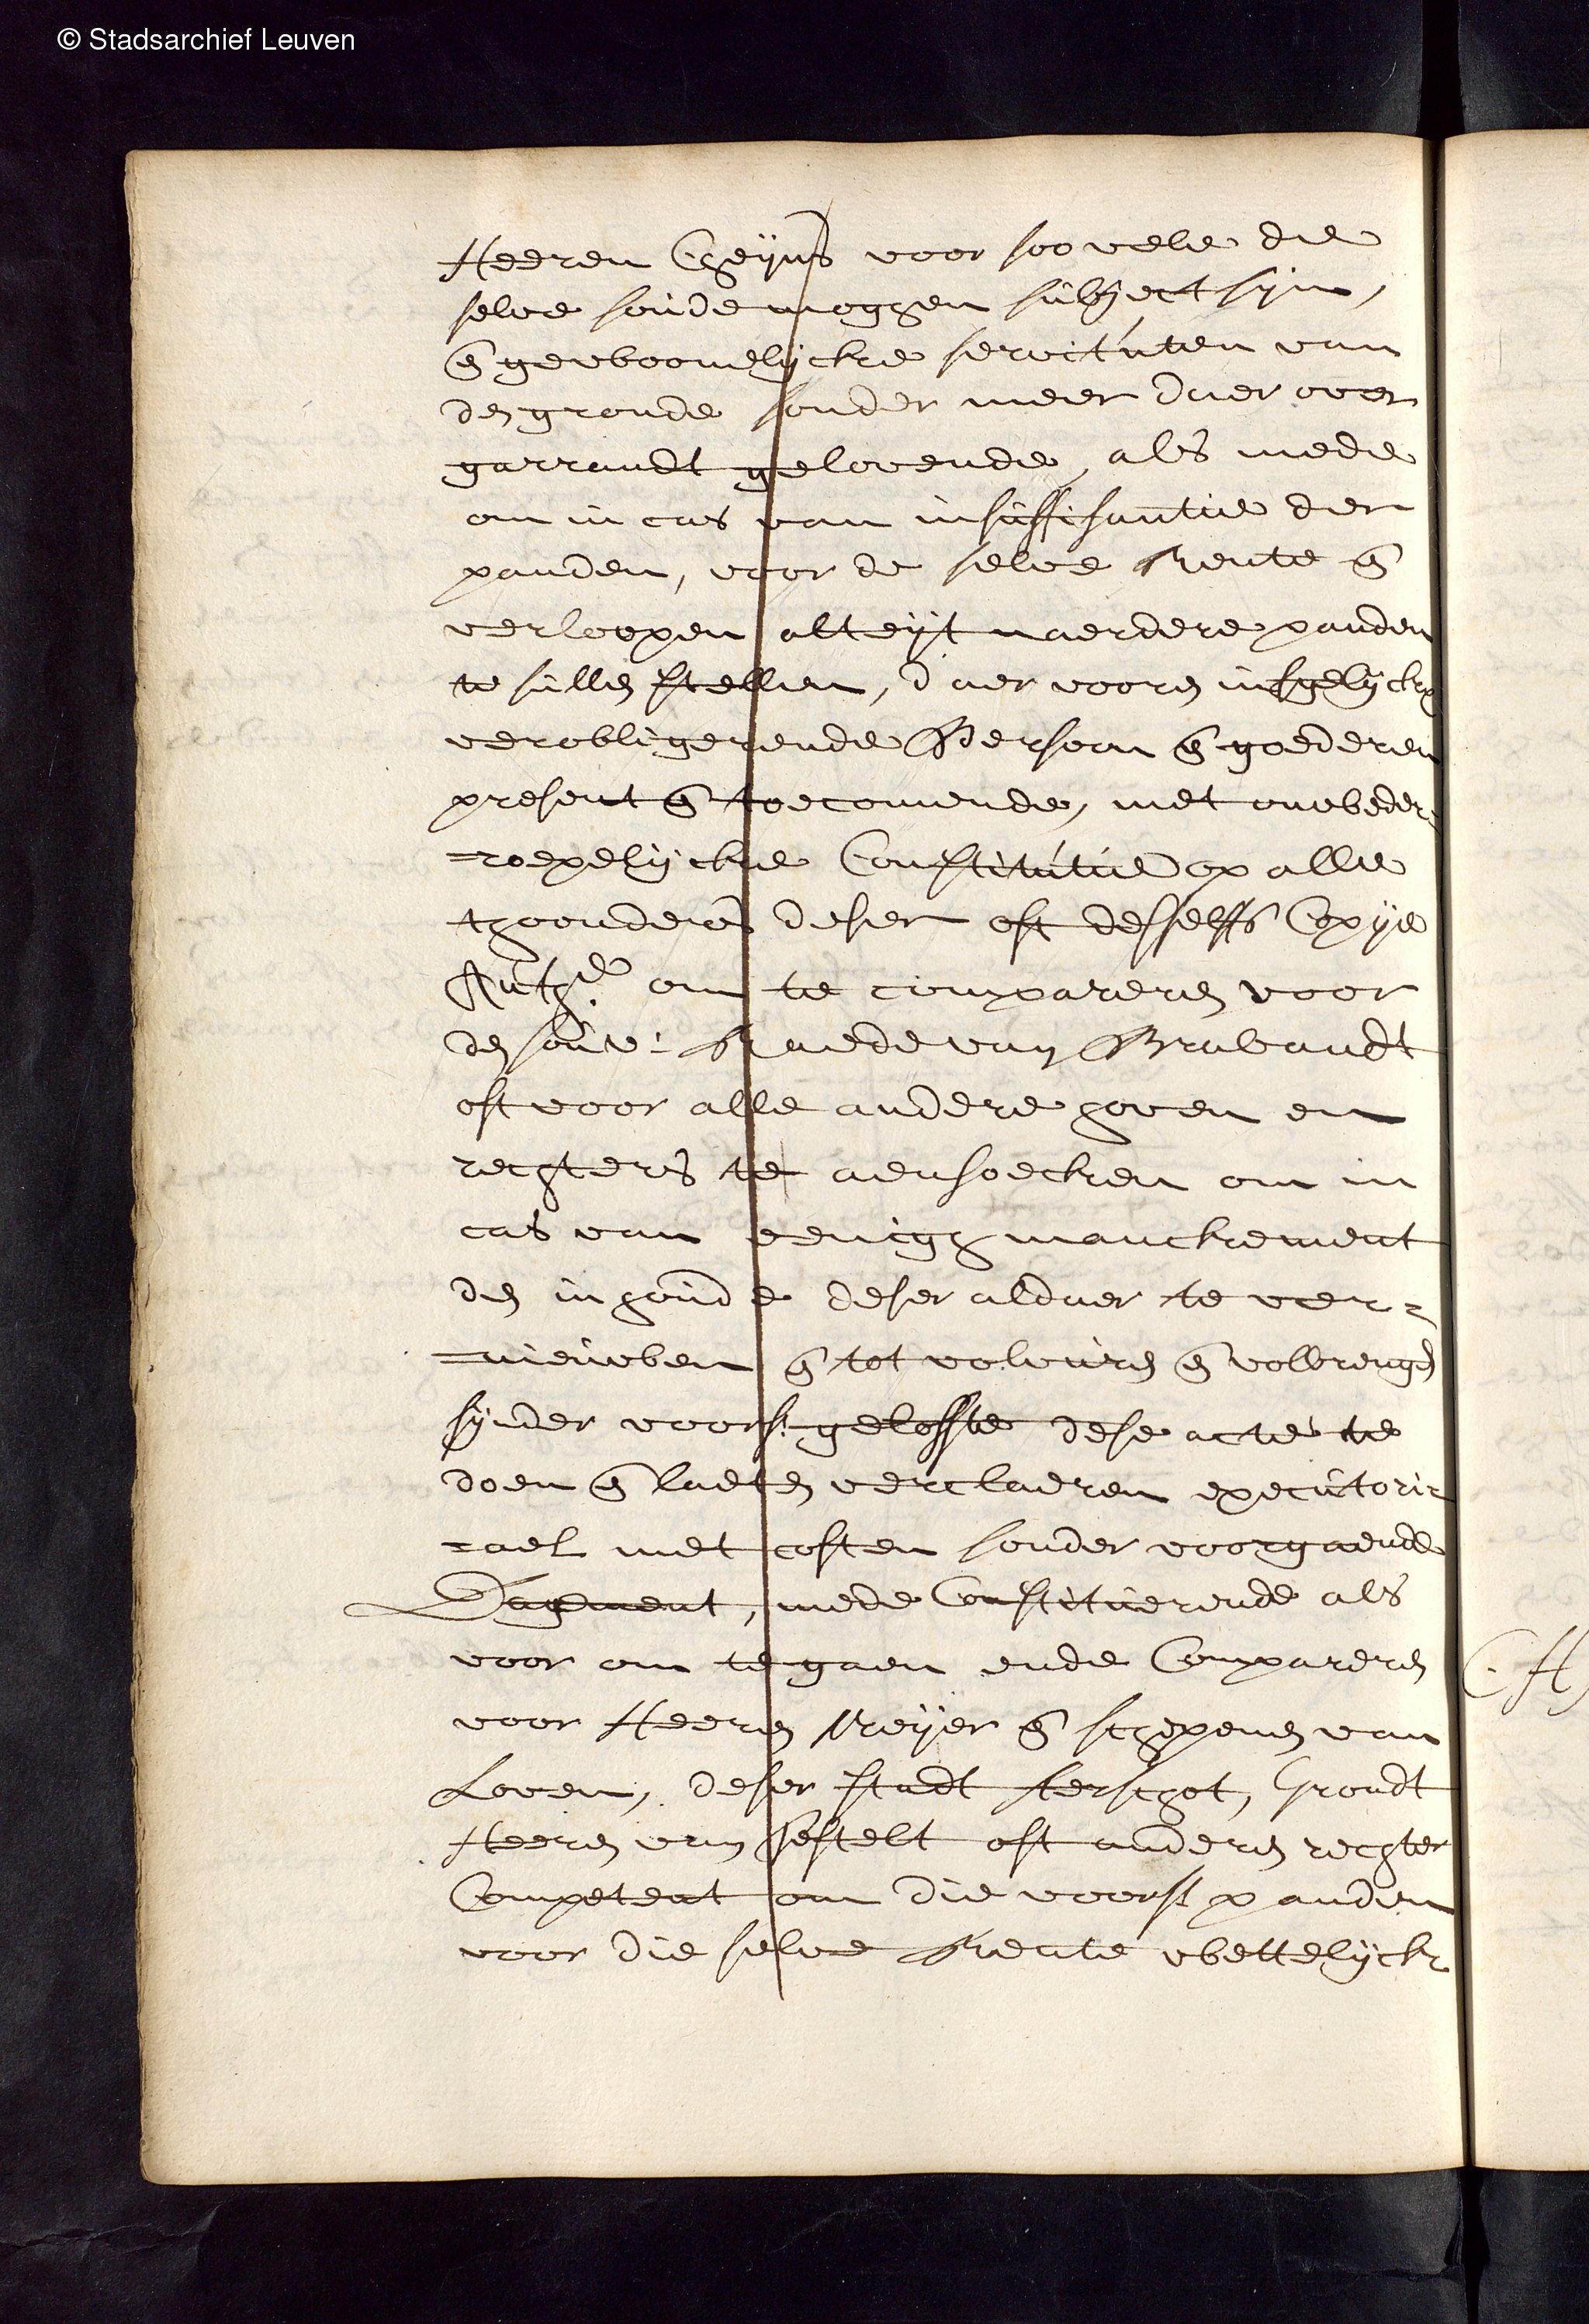 © Stadsarchief Leuven
Heeren Cheijns voor soo vele die
selve soude moggen subject sijn,
en gewoonelijcke servituten van
den gronde sonder meer daer over
garrandt gelovende, als mede
om in cas van insuffisantie der
panden, voor de selve Rente en
verloopen alteijt naerdere panden
te sullen stellen, daer vooren insgelijckx
verobligerende Persoon en goederen
present en toecomende, met onweder=
=roepelijcke Constitutie op alle
thoonders deser oft desselffs Copije
Auth.e om te compareren voor
den souv: Raede van Brabandt
oft voor alle andere hoven en
rechters te aensoecken om in
cas van eenigh manckement
den inhoude deser aldaer te ver=
=nieuwen en tot volvuren en volbrengen
sijnder voors. geloffte dese acte te
doen en laeten verclaeren executori=
=ael met costen sonder voorgaende
Dagement, mede Constituerende als
voor om te gaen ende Compareren
voor Heeren Meijer en schepenen van
Loven, deser stadt Aerschot, Grondt
Heeren van Hestelt oft anderen rechter
Competent om die voorst panden
voor die selve Rente wettelijck